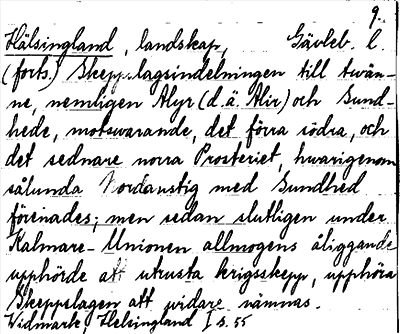 9.
Hälsingland, landskap, Gävleb. l.
(forts.) Skeppslagsindelningen till twän-
ne, nemligen Alyr (d.ä. Alir) och Sund-
hede, motswarande, det förra södra, och
det sednare norra Prosteriet, hwarigenom
sålunda Nordanstig med Sundhed
förenades; men sedan slutligen under
Kalmare-Unionen allmogens åliggande
upphörde att utrusta krigsskepp, upphöra
Skeppslagen att widare nämnas.
Widmark, Helsingland I s. 55